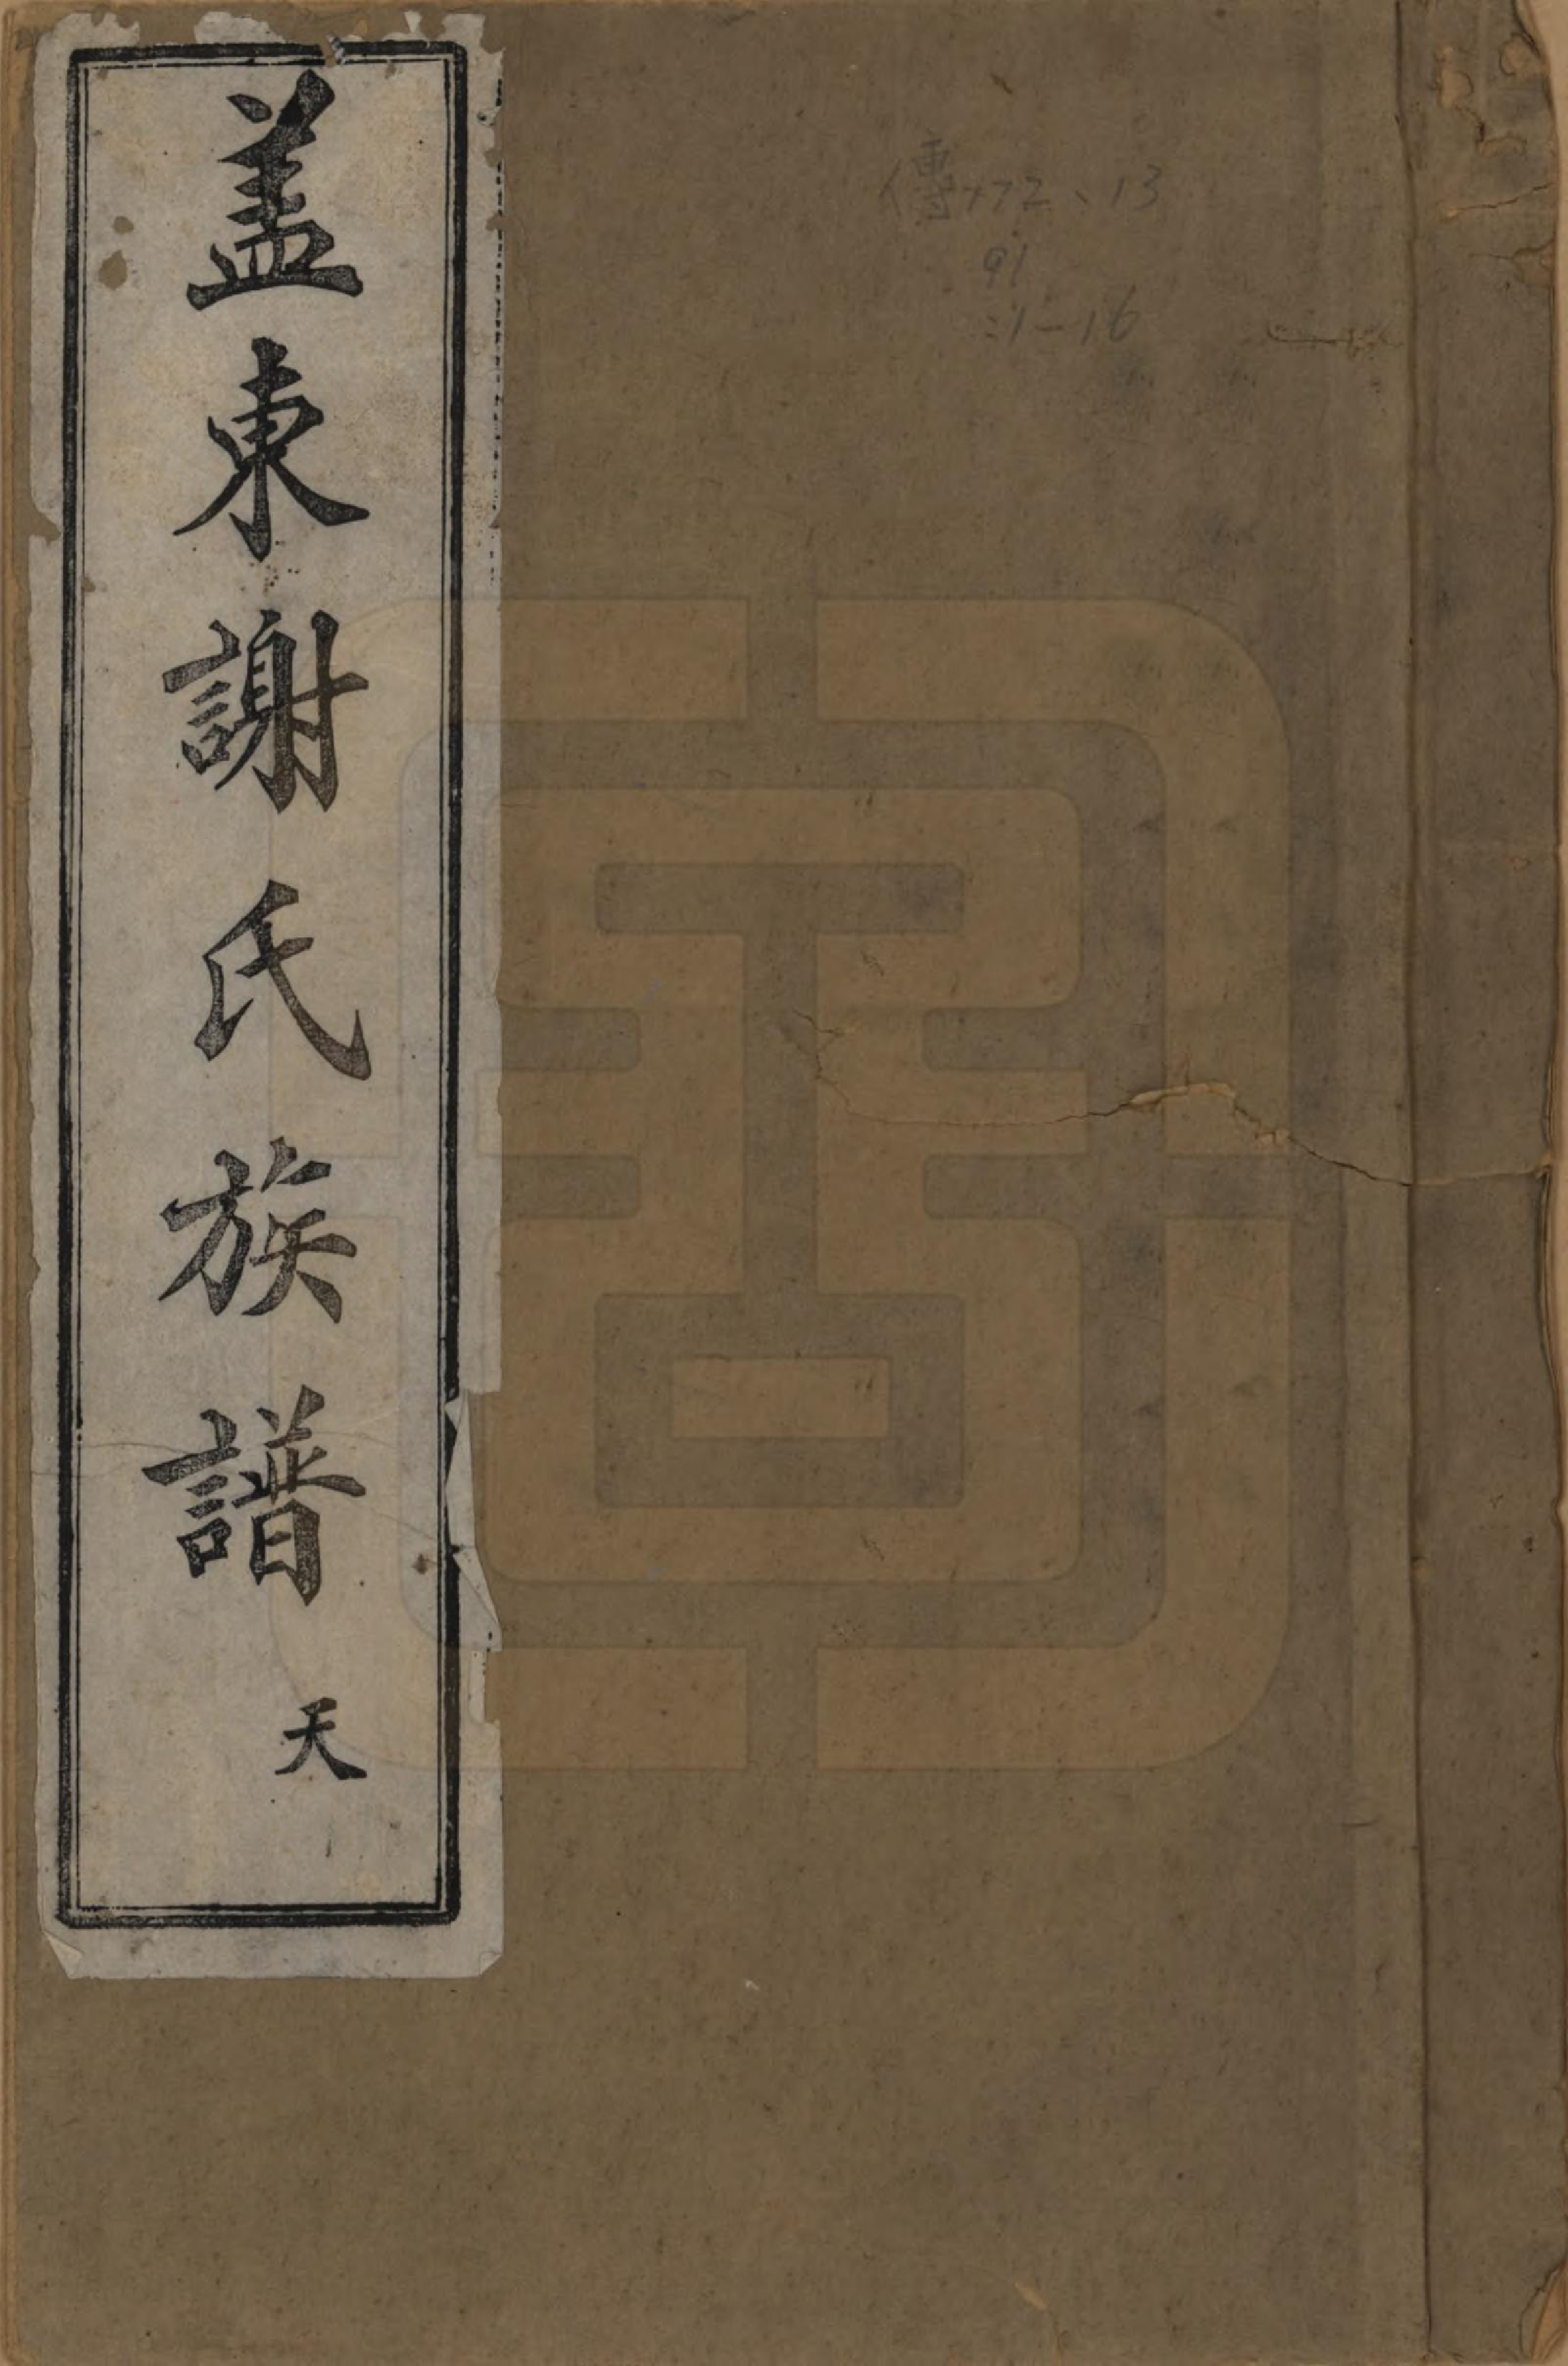 傳772、13
91
:1-16
盖東謝氏族譜 天